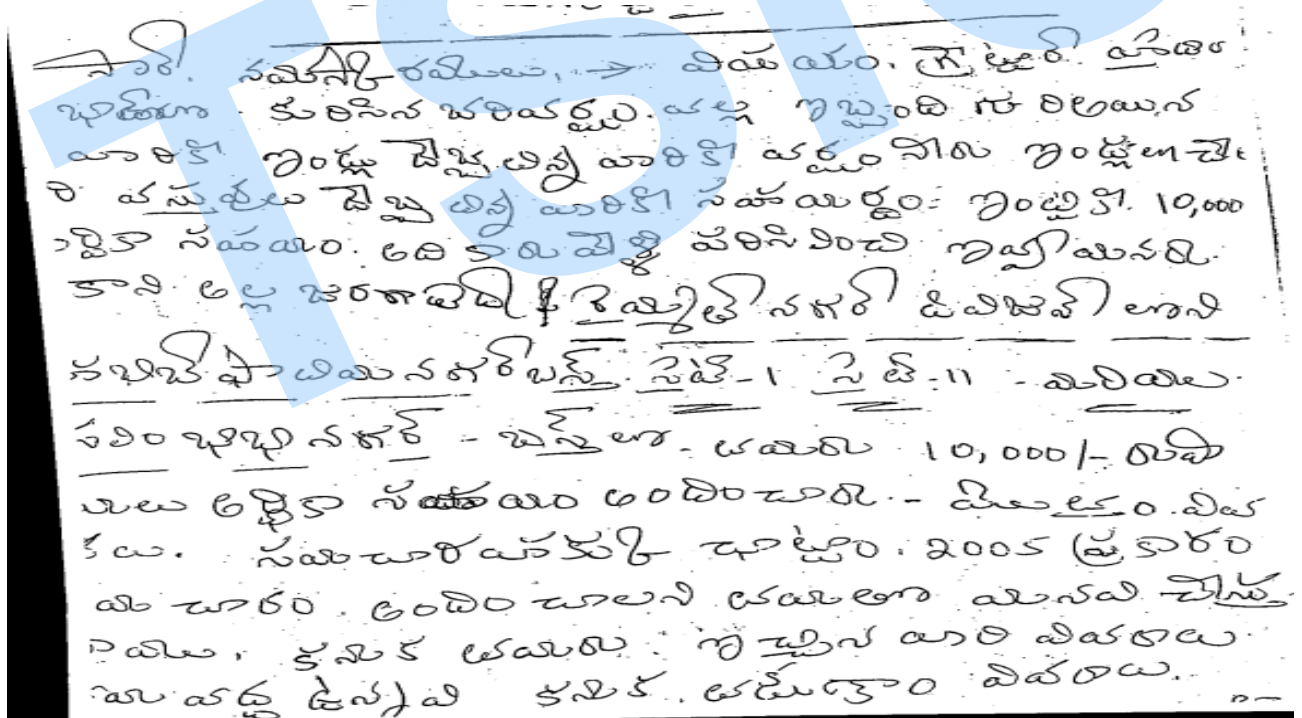 సార్. నమస్కారములు, → విషయం. గ్రేటర్ హైదరా
కురిసిన భారివర్షం. వల్ల ఇబ్బంది గురిఅయిన
వారికి ఇండ్లు దెబ్బతిన్న వారికి వర్షం నీరు ఇండ్లలో చే
రి వస్తువులు దెబ్బతిన్న వారికి సహయర్థం: ఇంటికి. 10,000
ర్థికా సహయం. అధికారులు వెళ్ళి పరిసిలించి
కాని అల్ల జరగలేదు నగర్ డివిజన్ లోని
నగర్ బస్తి సైట్-1 సైట్-11 - మరియు
నగర్ - బస్తీ లో. తమరు 10,000/- రూపా
యలు ఆర్థికా సహయం అందించారు. - మొత్తం. వివ
సమాచారహక్కు చట్టం. 2005 ప్రకారం
మాచారం. అందించాలని తమతో మనవి చేస్తు
కనుక తమరు. ఇచ్చిన వారి వివరాలు
మీ వద్ద ఉన్నవి కనుక. వివరాలు.